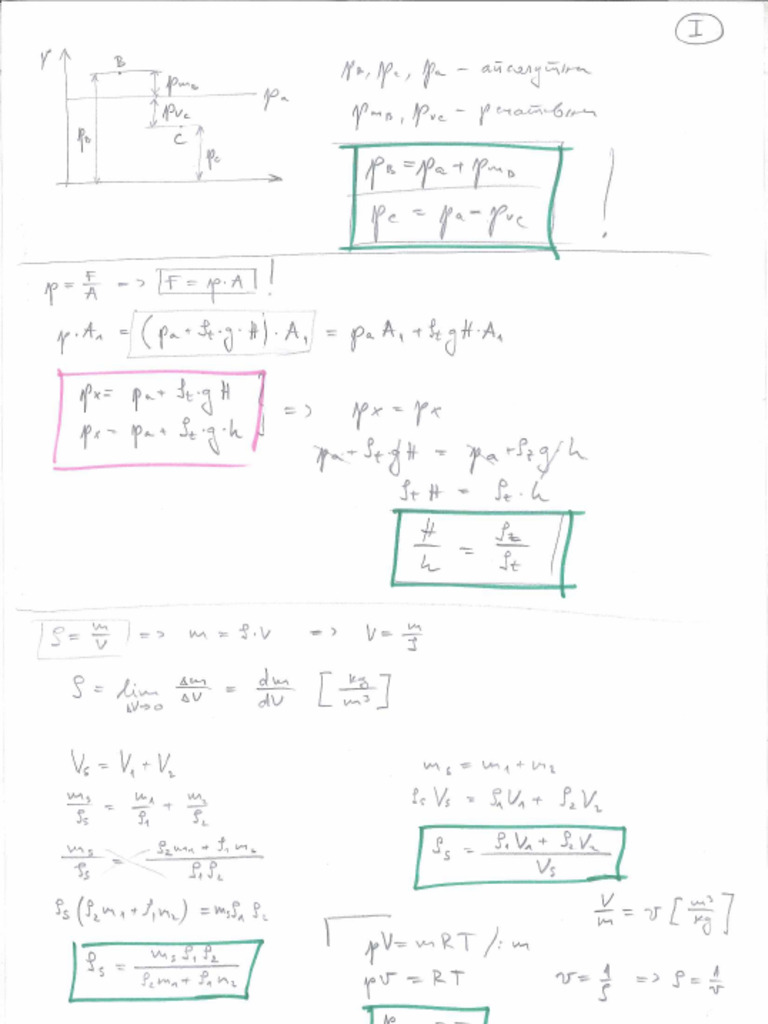 I
p B p_mB p_a
p_B p_vc C p_c
p_B, p_c, p_a - апсолутни
p_mB, p_vc -
p_B = p_a + p_mB
p_c = p_a - p_vc !
p = F/A => F = p·A !
p·A₁ = (p_a + ρ_t·g·H)·A₁ = p_a A₁ + ρ_t g H·A₁
p_x = p_a + ρ_t·g H
p_x = p_a + ρ_z·g·h => p_x = p_x
p_a + ρ_t·g H = p_a + ρ_z g h
ρ_t H = ρ_z·h
H/h = ρ_z/ρ_t
ρ = m/V => m = ρ·V => V = m/ρ
ρ = lim ΔV→0 Δm/ΔV = dm/dV [kg/m³]
V_s = V₁ + V₂
m_s/ρ_s = m₁/ρ₁ + m₂/ρ₂
m_s/ρ_s = (ρ₂m₁ + ρ₁m₂)/(ρ₁ρ₂)
ρ_s(ρ₂m₁ + ρ₁m₂) = m_sρ₁ρ₂
ρ_s = m_sρ₁ρ₂/(ρ₂m₁ + ρ₁m₂)
m_s = m₁ + m₂
ρ_s V_s = ρ₁V₁ + ρ₂V₂
ρ_s = (ρ₁V₁ + ρ₂V₂)/V_s
V/m = v [m³/kg]
pV = mRT /: m
pv = RT v = 1/ρ => ρ = 1/v